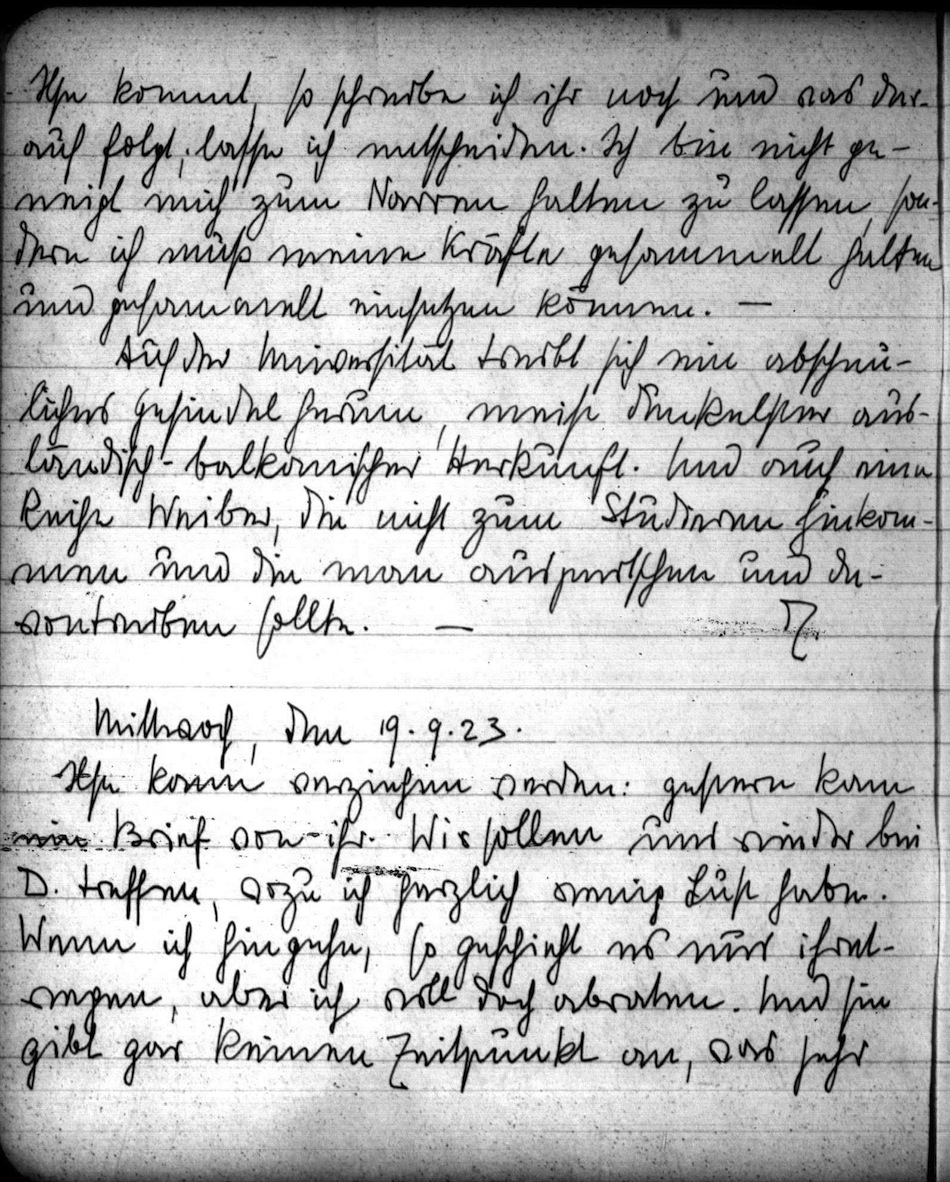 Ilse kommt, so schreibe ich ihr noch und was dar-
auf folgt, lasse ich entscheiden. Ich bin nicht ge-
neigt mich zum Narren halten zu lassen, son-
dern ich muß meine Kräfte gesammelt halten
und gesammelt einsetzen können. —
Auf der Universität treibt sich ein abscheu-
liches Gesindel herum, meist dunkelster aus-
ländisch-balkanischer Herkunft. Und auch eine
Reihe Weiber, die nicht zum Studieren hinkom-
men und die man auspeitschen und da-
vontreiben sollte. —
Mittwoch, den 19.9.23.
Ilse kann verziehen werden: gestern kam
ein Brief von ihr. Wir sollen uns wieder bei
D. treffen, wozu ich herzlich wenig Lust habe.
Wenn ich hingehe, so geschieht es nur ihret-
wegen, aber ich will doch abraten. Und sie
gibt gar keinen Zeitpunkt an, was sehr